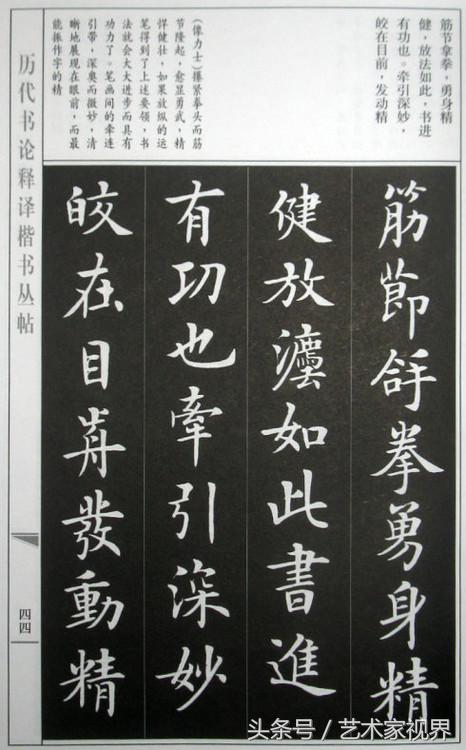 筋节拿拳，勇身精
健，放法如此，书进
有功也。牵引深妙，
皎在目前，发动精
（像力士）攥紧拳头而筋
节隆起，愈显勇武，精
悍健壮，如果放纵的运
笔得到了上述要领，书
法就会大大进步而具有
功力了。笔画间的牵连
引带，深奥而微妙，清
晰地展现在眼前，而最
能振作字的精
筋節拿拳勇身精
健放灋如此書進
有功也牽引深妙
皎在目歬發動精
历代书论释译楷书丛帖
四四
头条号／艺术家视界